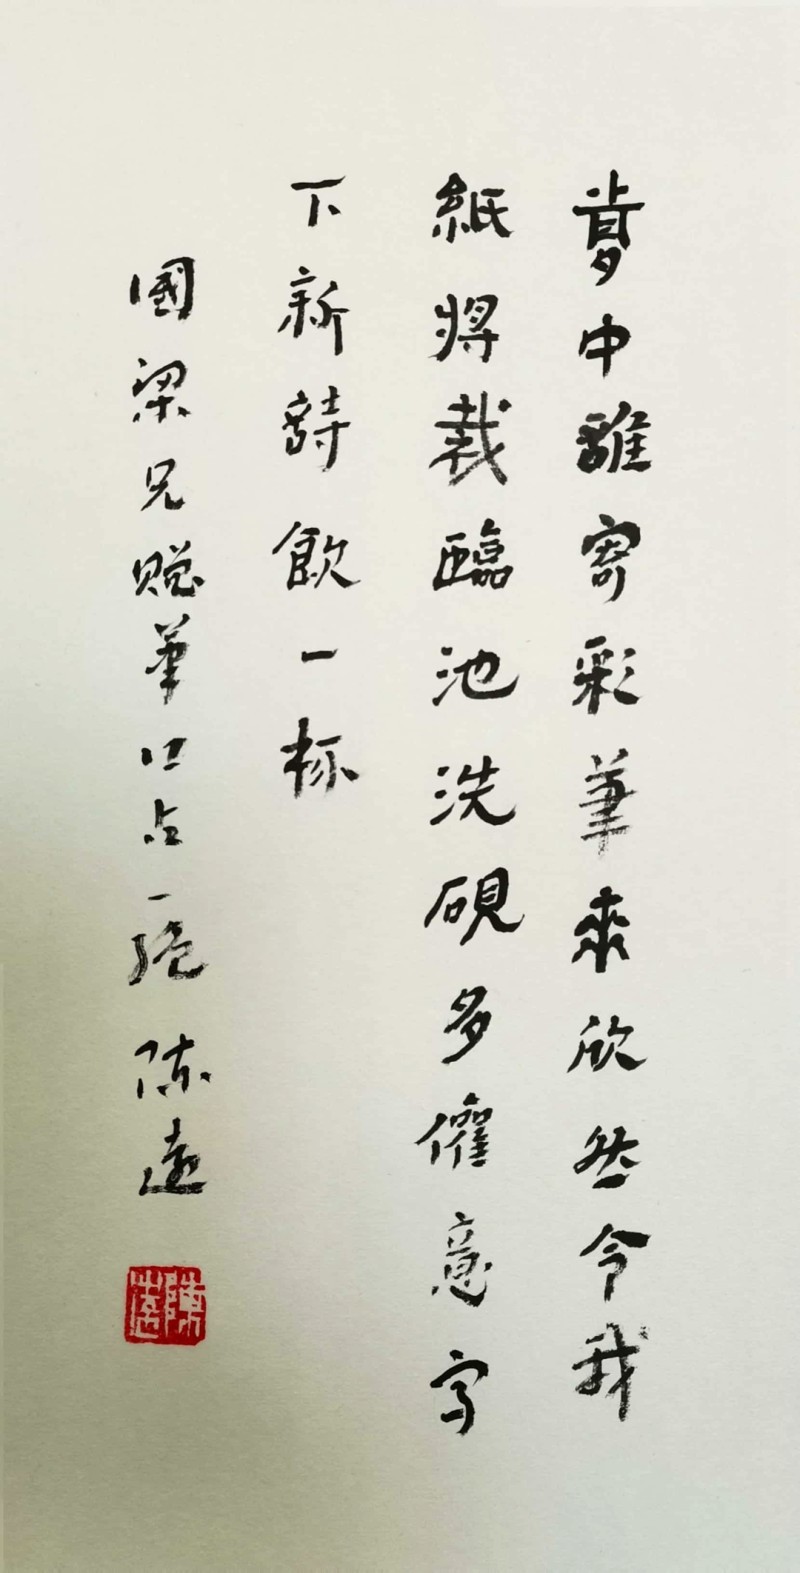 夢中誰寄彩筆來欣然令我
紙將裁臨池洗硯多儺意写
下新詩飲一杯
國梁兄贈筆口占一絕陳遠
陳遠